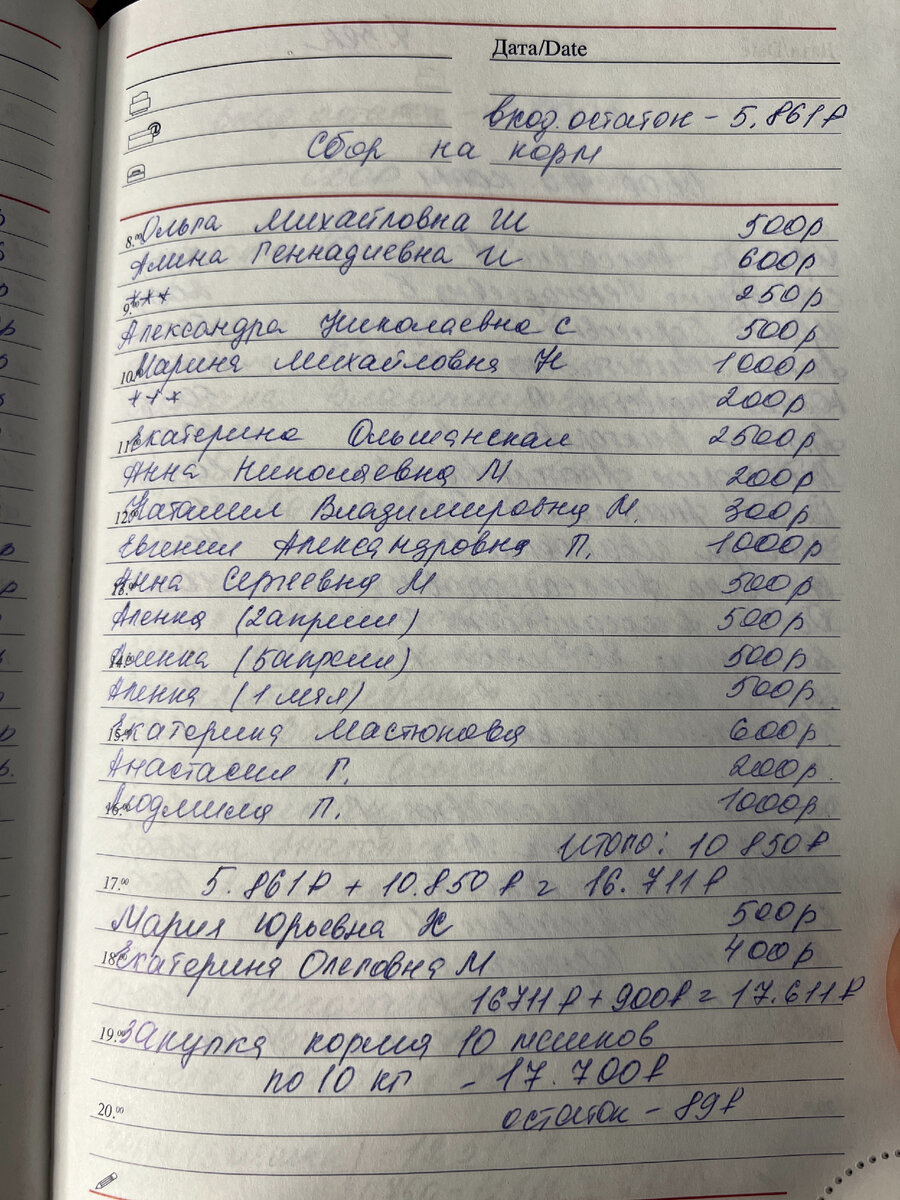 Дата/Date
вход. остаток - 5.861₽
Сбор на корм
8.00 Ольга Михайловна Ш 500р
Алина Геннадиевна И 600р
9.00 *** 250р
Александра Николаевна С 500р
10.00 Марина Михайловна Н 1000р
*** 200р
11.00 Екатерина Ольшанская 2500р
Анна Николаевна М 200р
12.00 Наталия Владимировна М. 300р
Евгения Александровна П. 1000р
13.00 Анна Сергеевна М 500р
Аленка (2апреля) 500р
14.00 Аленка (5апреля) 500р
Аленка (1 мая) 500р
15.00 Екатерина Мастюкова 600р
Анастасия Г. 200р
16.00 Людмила П. 1000р
Итого: 10 850₽
17.00 5.861₽ + 10.850₽ = 16.711₽
Мария Юрьевна К 500р
18.00 Екатерина Олеговна М 400р
16711₽ + 900₽ = 17.611₽
19.00 Закупка корма 10 мешков
по 10 кг - 17.700₽
20.00 остаток - 89₽